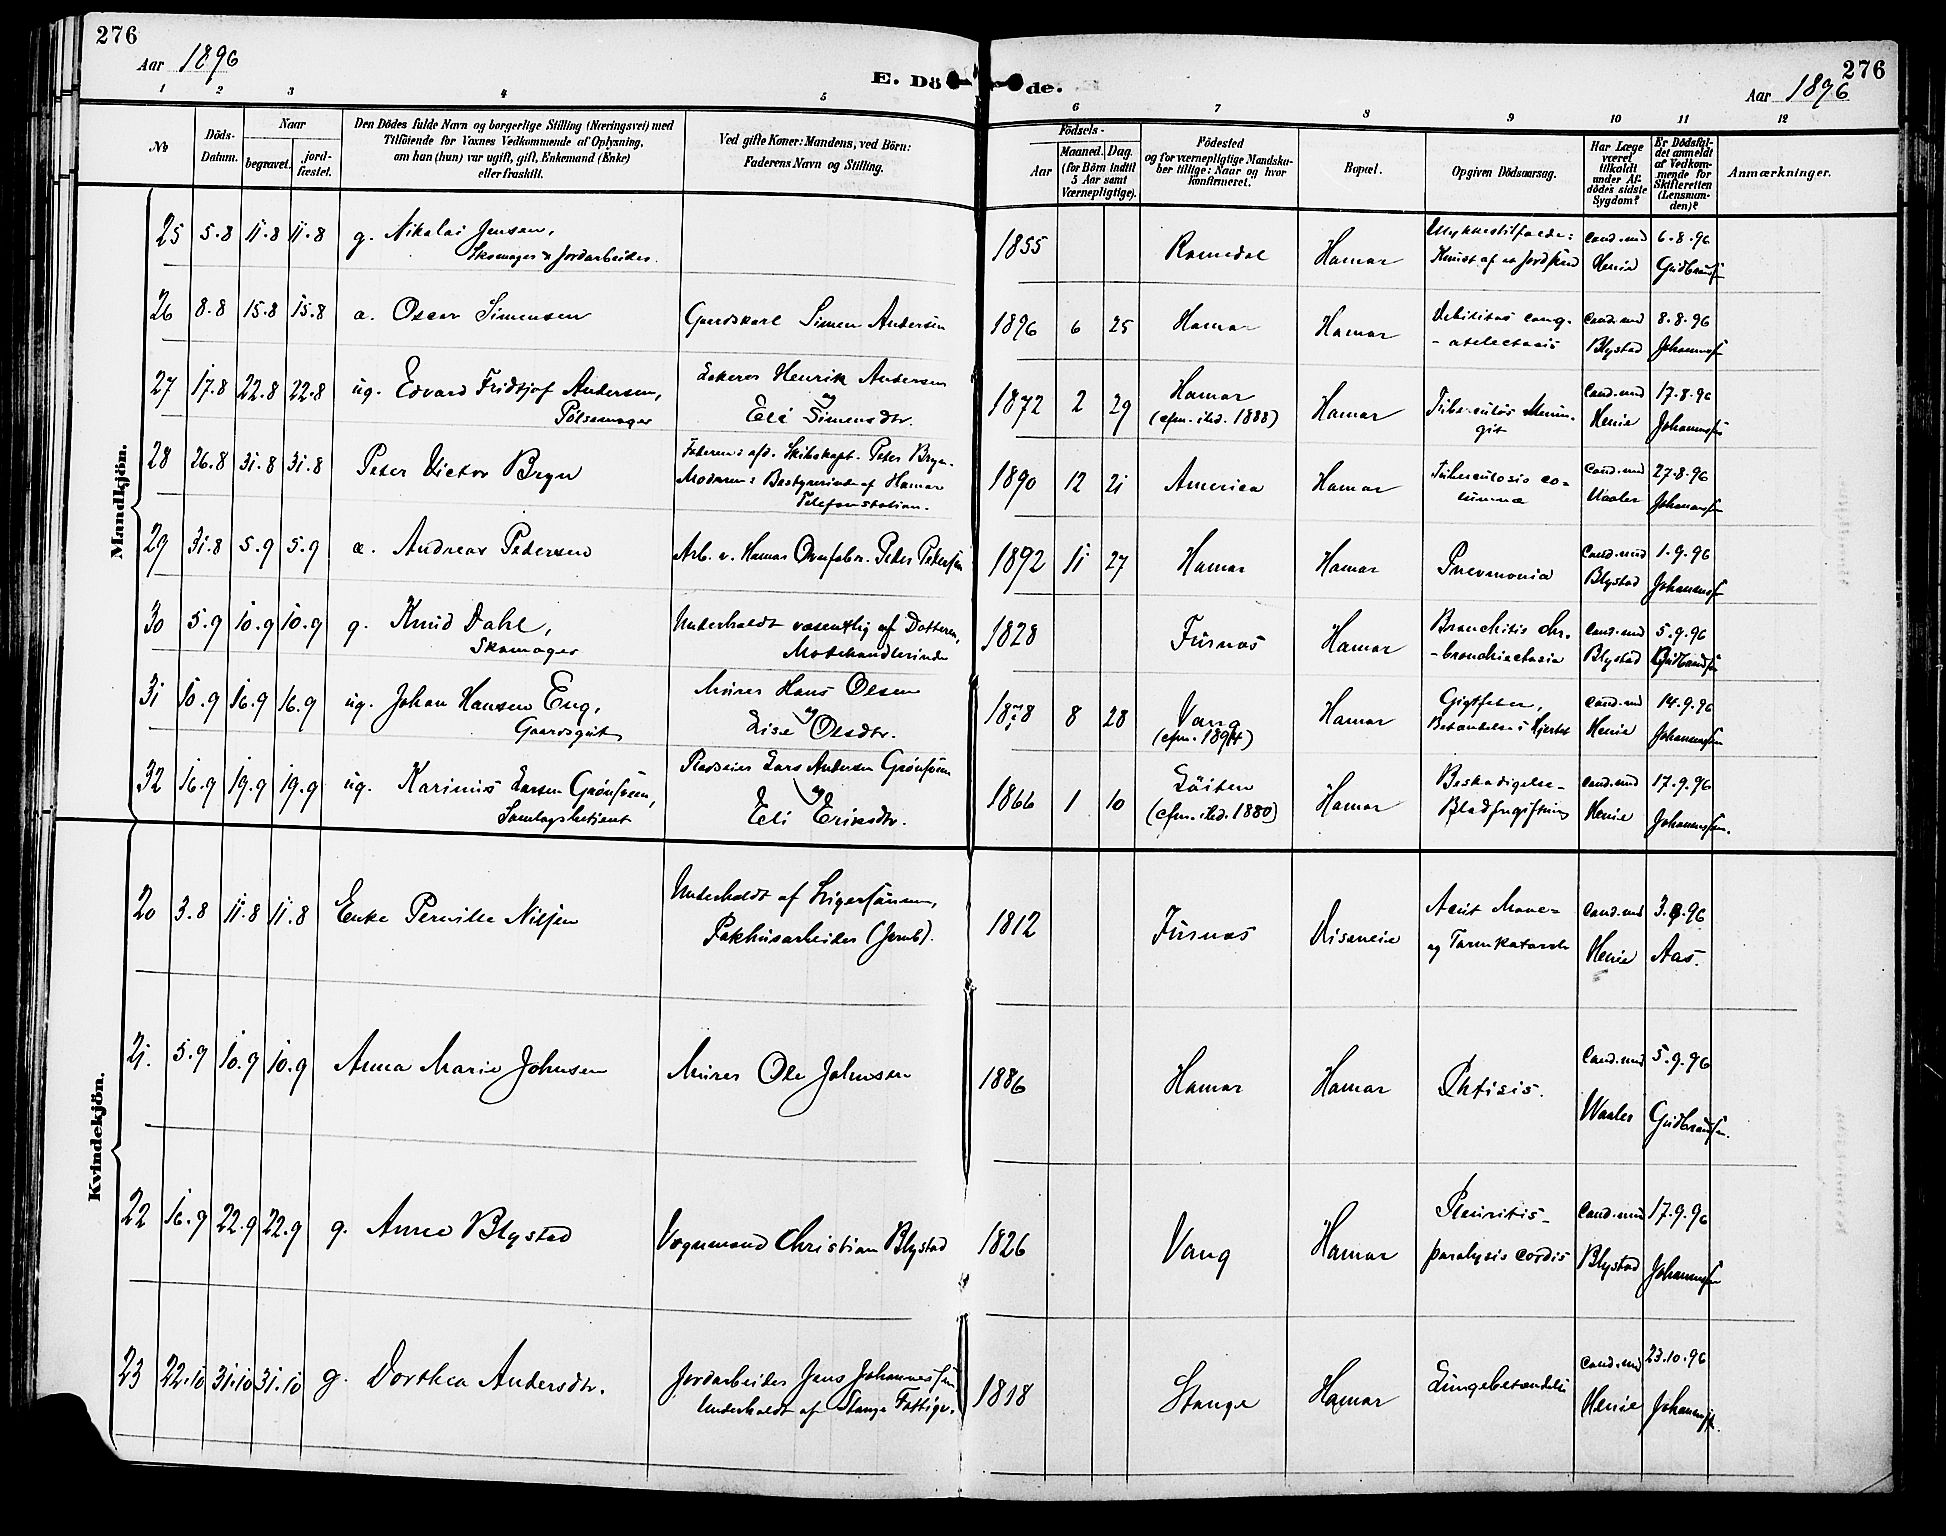 276
Aar 1896
E. Döde.
276
Aar 1896
1 2 3 4 5 6 7 8 9 10 11 12
No
Döds-Datum.
Naar
begravet.
jord-fæstet.
Den Dödes fulde Navn og borgerlige Stilling (Næringsvei) med
Tilföiende for Voxnes Vedkommende af Oplysning,
om han (hun) var ugift, gift, Enkemand (Enke)
eller fraskilt.
Ved gifte Koner: Mandens, ved Börn:
Faderens Navn og Stilling.
Födsels-
Aar
Maaned. Dag.
(for Börn indtil
5 Aar samt
Værnepligtige).
Födested
og for værnepligtige Mandska-
ber tillige: Naar og hvor
konfirmeret.
Bopæl.
Opgiven Dödsaarsag.
Har Læge
været
tilkaldt
under Af-
dödes sidste
Sygdom?
Er Dödsfal-
det anmeldt
af Vedkom-
mende for
Skifteretten
(Lensman-
den)?
Anmærkninger.
Mandkjön.
25 5.8 11.8 11.8 g. Nikolai Jensen, 1855 Romedal Hamar Ulykkestilfælde: cand.med 6.8.96
Skomager & Jordarbeider. Knust af en Jordskred Henie Gudbrandsen
26 8.8 15.8 15.8 a. Oscar Simensen Gaardskarl Simen Andersen 1896 6 25 Hamar Hamar Debilitas cong. cand.med 8.8.96
- atelectasis Blystad Johannessen
27 17.8 22.8 22.8 ug. Edvard Fridtjof Andersen, Henrik Andersen 1872 2 29 Hamar Hamar Tuberculøs Menin- cand.med 17.8.96
Pølsemager og Eli Simensdtr. (cfm. ibid. 1888) git Henie Johannessen
28 26.8 31.8 31.8 Peter Victor Bryn Faderen: afd. Skibskapt. Peter Bryn. 1890 12 21 America Hamar Tuberculosis co- cand.med 27.8.96
Moderen: Bestyrerinde af Hamar lumnæ Waaler Johannessen
Telefonstation.
29 31.8 5.9 5.9 a. Andreas Pedersen Arb. v. Hamar Ovnfabr. Peder Pedersen 1892 11 27 Hamar Hamar Pneumonia cand.med 1.9.96
Blystad Johannessen
30 5.9 10.9 10.9 g. Knud Dahl, Underholdt væsentlig af Datteren, 1828 Furnæs Hamar Bronchitis chr. cand.med 5.9.96
Skomager Motehandlerinde - bronchiectasia Blystad Gudbrandsen
31 10.9 16.9 16.9 ug. Johan Hansen Eng, Murer Hans Olsen 1878 8 28 Vang Hamar Gigtfeber, cand.med 14.9.96
Gaardsgut og Lise Olsdtr. (cfm. 1894) Betændelse i Hjertet Henie Johannessen
32 16.9 19.9 19.9 ug. Karinius Larsen Grønsveen, Pladseier Lars Andersen Grønsveen 1866 1 10 Løiten Hamar Beskadigelse- cand.med 17.9.96
Samlagsbetjent og Eli Eriksdtr. (cfm. ibid. 1880) Blodforgiftning Henie Johannessen.
Kvindekjön.
20 3.8 11.8 11.8 Enke Pernille Nilsen Underholdt af Svigersønnen, 1812 Furnæs Diseneie Acut Mave- cand.med 3.8.96
Pakhusarbeider (Jernb). og Tarmkatarrh Henie Aas.
21. 5.9 10.9 10.9 Anna Marie Johnsen Murer Ole Johnsen 1886 Hamar Hamar Phtisis. cand.med 5.9.96
Waaler Gudbrandsen.
22 16.9 22.9 22.9 g. Anne Blystad Vognmand Christian Blystad 1826 Vang Hamar Pleuritis- cand.med 17.9.96
paralysis cordis Blystad Johannessen
23 22.10 31.10 31.10 g. Dorthea Andersdtr. Jordarbeider Jens Johannessen 1818 Stange Hamar Lungebetændelse cand.med 23.10.96
Underholdt af Stange Fattigv. Henie Johannessen.